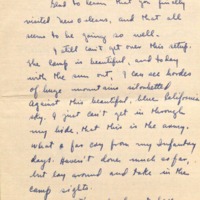 Glad to learn that you finally
visited New Orleans, and that all
seems to be going so well.
I still can't get over this setup.
The camp is beautiful, and today
with the sun out, I can see hordes
of huge mountains silhouetted
against this beautiful, blue California
sky. I just can't get it through
my hide, that this is the army.
What a far cry from my Infantry
days. Haven't done much so far,
but lay around and take in the
camp sights.